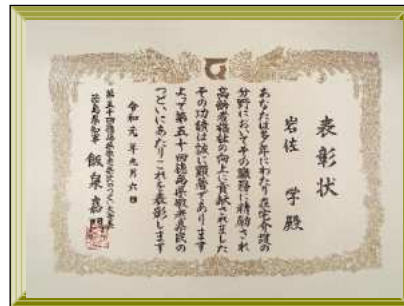 表彰状
岩佐 学 殿
あなたは多年にわたり在宅介護の
分野においてその職務に精励され
高齢者福祉の向上に貢献されました
その功績は誠に顕著であります
よって第五十回徳島県敬老県民の
つどいにあたりこれを表彰します
令和元年九月六日
第五十回徳島県敬老県民のつどい大会長
徳島県知事 飯泉嘉門